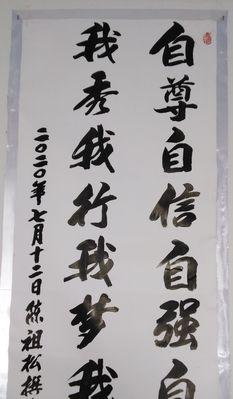 自尊自信自强自
我秀我行我梦我
二〇二〇年七月十二日陈祖松撰